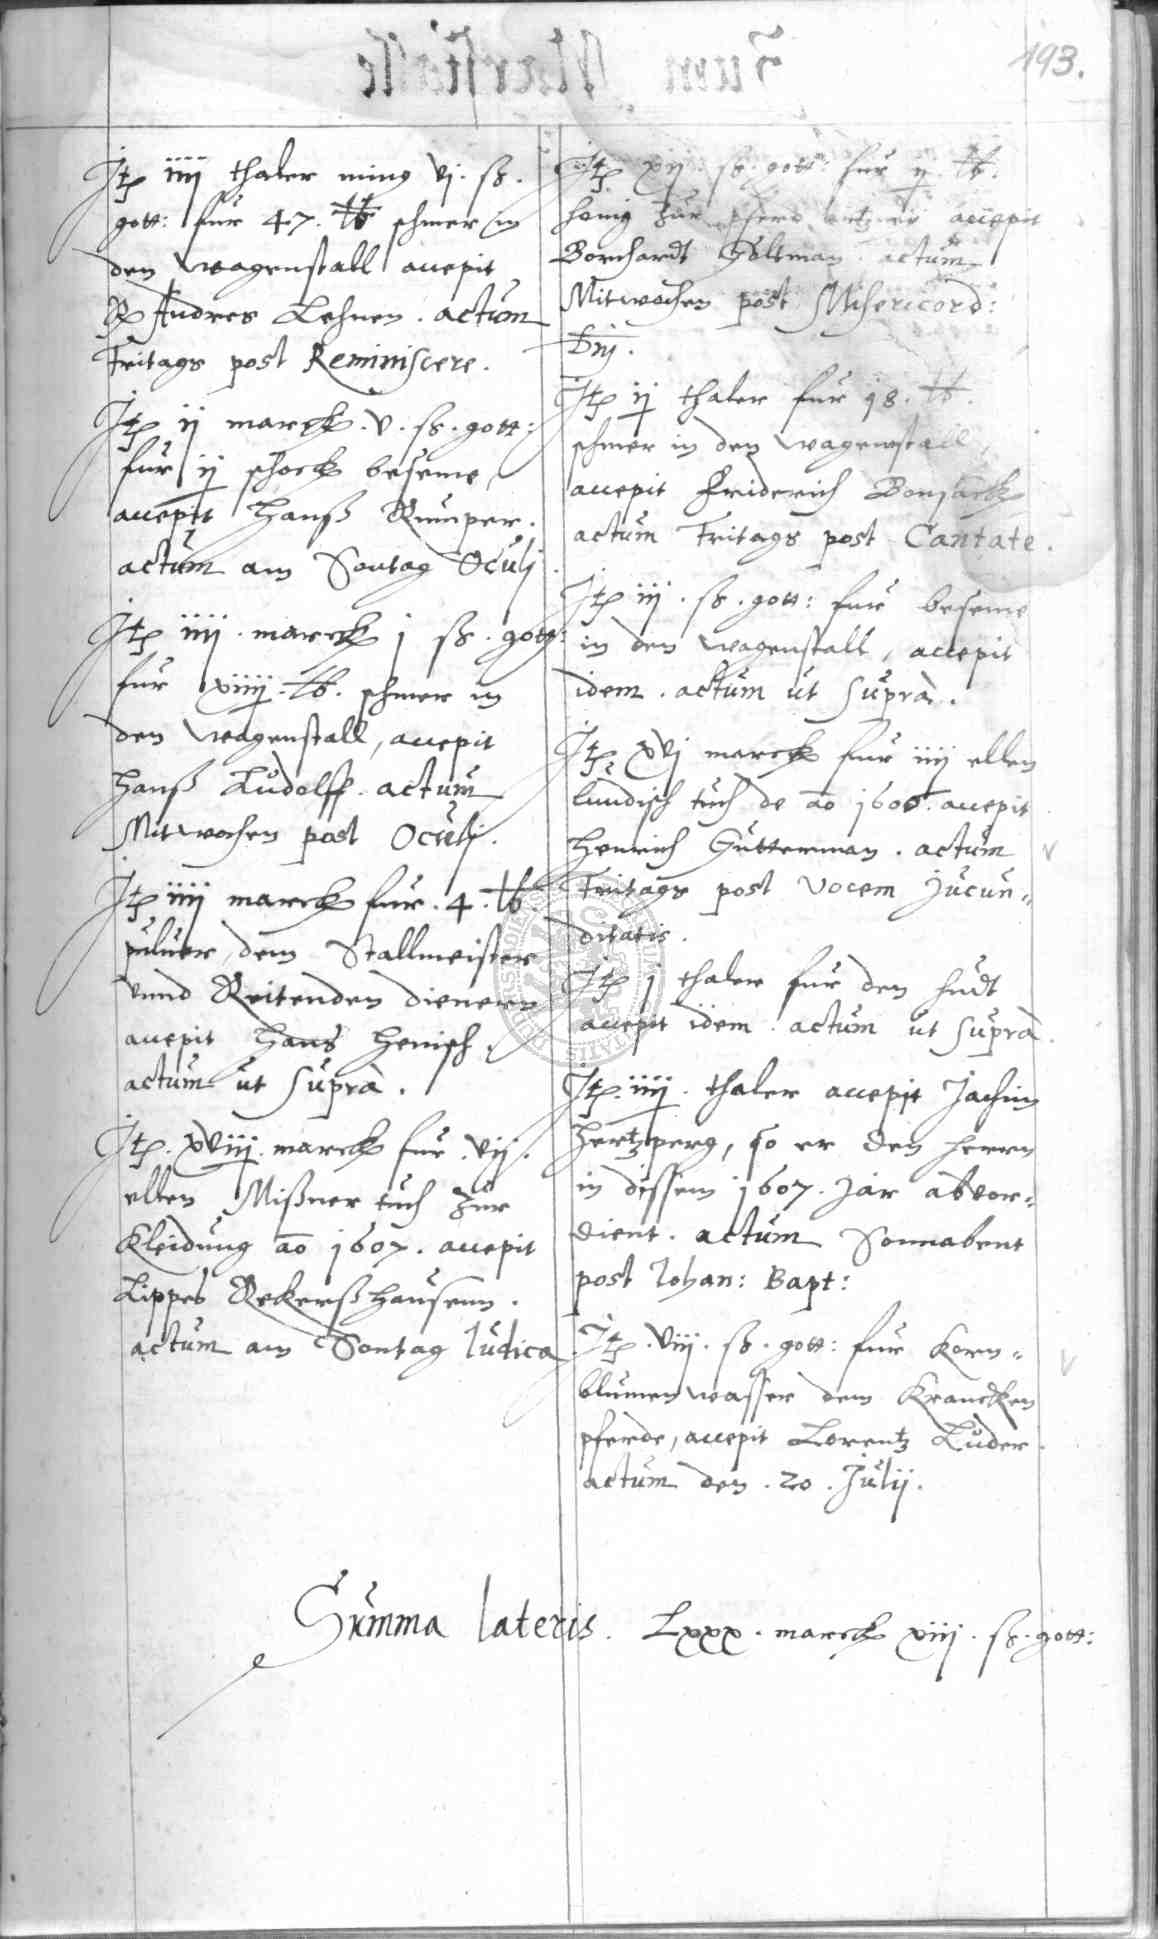 193.
Itƺ iiij thaler ming vj. ß.
gott: fur 47. ℔ schmer in
den wagenstall accepit
Andres Lehnen. actum
Fritags post Reminiscere.
Itƺ ij marck. v. ß. gott:
fur ij schock beseme,
accepit Hanß Rumper.
actum am Sontag Oculj
Itƺ iiij. marck j ß. gott:
fur xiiij. ℔. schmer in
den wagenstall, accepit
Hanß Ludolff. actum
Mitwochen post Oculj.
Itƺ iiij marck fur. 4. ℔.
puluer, dem Stallmeister
vnnd Reitenden dienern
accepit Hans Henisch.
actum ut supra.
Itƺ. xviij. marck fur. vij.
ellen Mißner tuch zur
Kleidung ao 1607. accepit
Lippes Rekerßhausenn.
actum am Sontag Iudica
Itƺ. xij. ß. gott: fur ij. ℔.
honig zur pferd artznei accepit
Borchardt Soltman. actum
Mitwochen post Misericord:
Dnj.
Itƺ ij thaler fur 18. ℔.
schmer in den wagenstall,
accepit Friderich Bonsack
actum Fritags post Cantate.
Itƺ iij. ß. gott: fur beseme
in den wagenstall, accepit
idem. actum ut supra.
Itƺ xvj marck fur iiij ellen
lundisch tuch de ao 1606. accepit
Henrich Gutterman. actum
Fritags post Vocem Jucun„
ditatis.
Itƺ j thaler fur den hudt
accepit idem. actum ut supra.
Itƺ. iiij. thaler accepit Jachim
Hertzperg, so er den herrn
in dissem 1607. Jar abvor„
dient. actum Sonnabent
post Iohan: Bapt:
Itƺ. viij. ß. gott: fur Korn„
blumen wasser dem Krancken
pferde, accepit Lorentz Luder.
actum den. 20. Julij.
Summa lateris. Lxxx. marck xiij. ß. gott: